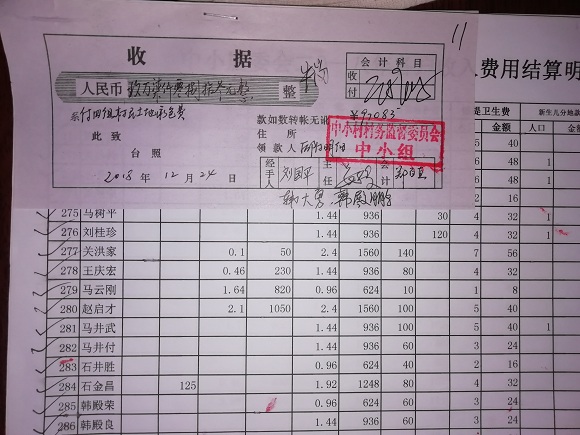 11
收 据
会计科目
人民币
整
收
付
¥92083
系付四组村民土地承包费
款如数转帐无讹
此致
住所
台照
领款人
中小村村务监督委员会
中小组
2018年12月24日
经手人 刘国平 主任 会计
韩大勇 韩殿鹏
费用结算明
卫生费 新生儿分地款
金额 人口 金额 人口
5 40
6 48 1
6 48 1
2 16
275 马树平 1.44 936 30 4 32 1
276 刘桂珍 1.44 936 120 4 32 1
277 关洪家 0.1 50 2.4 1560 140 7 56
278 王庆宏 0.46 230 1.44 936 80 4 32
279 马云刚 1.64 820 0.96 624 10 1 8
280 赵启才 2.1 1050 2.4 1560 100 5 40
281 马井武 1.44 936 100 5 40 1
282 马井付 1.44 936 60 3 24
283 石井胜 0.96 624 40 2 16
284 石金昌 125 1.92 1248 80 4 32
285 韩殿荣 0.96 624 60 3 24
286 韩殿良 1.44 936 60 3 24